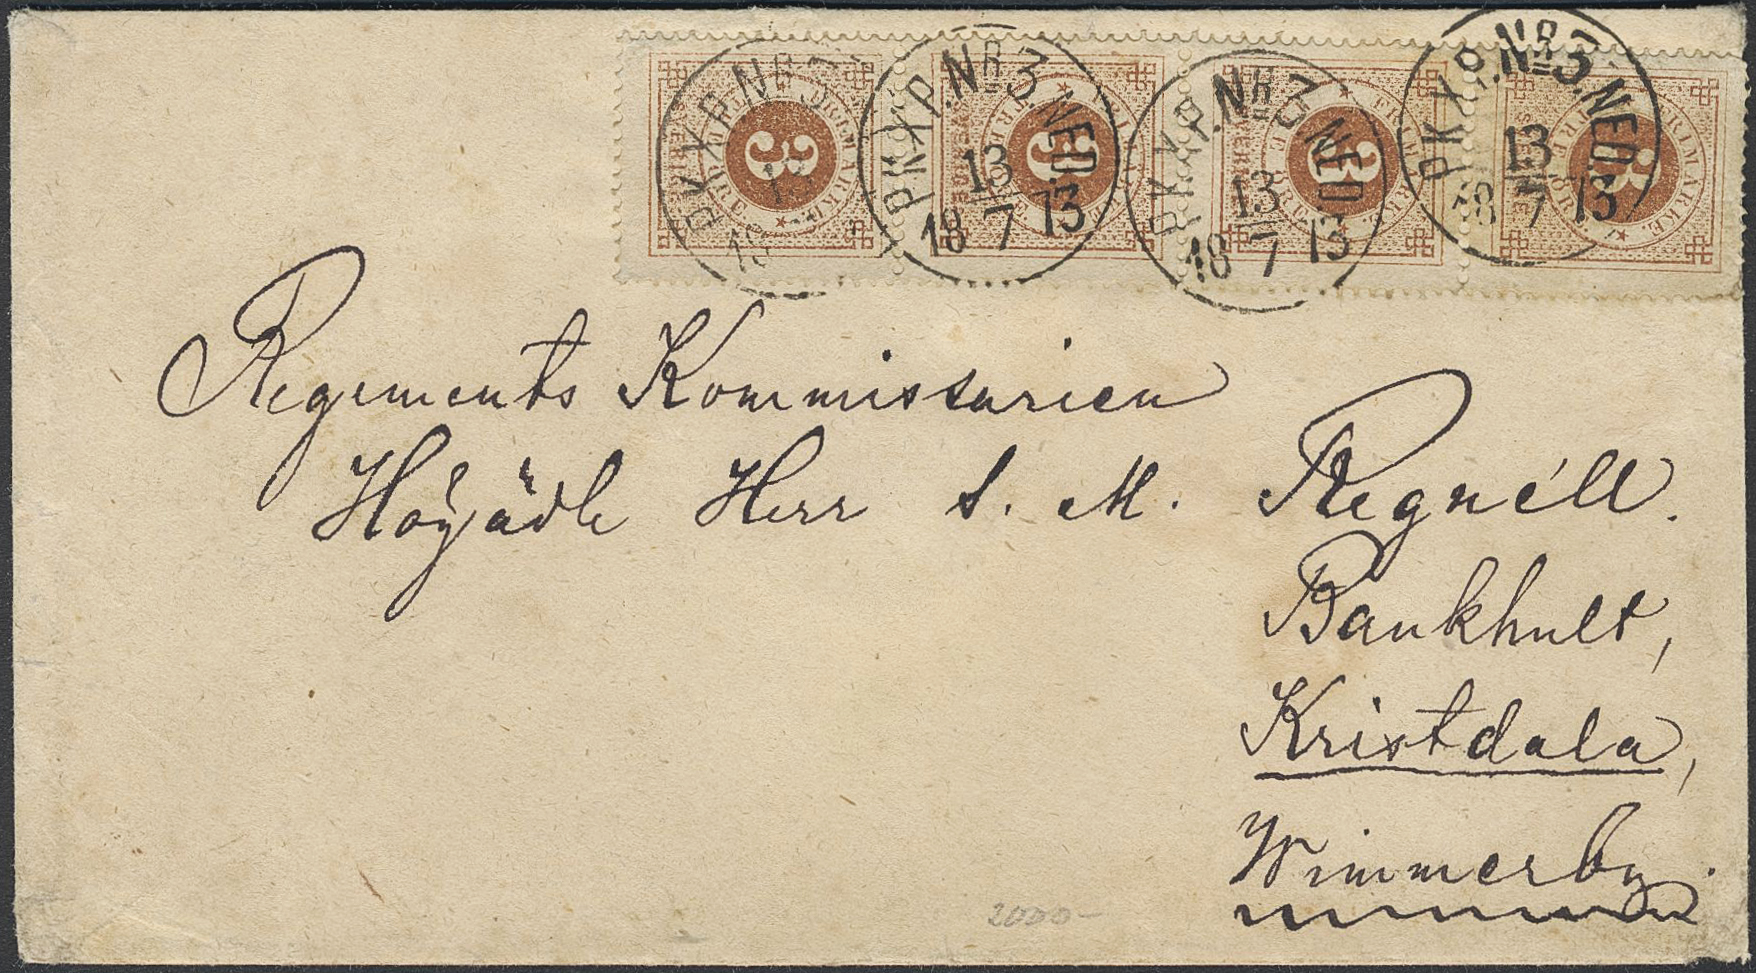 PKXP. Nº 3
13
18
PKXP. Nº 3 NED.
13
18 7 13
PKXP. Nº 3 NED
13
18 7 13
PKXP. Nº 3. NED.
13
18 7 13
3
3
3
3
FRIMÄRKE
Regements Kommissarien
Högädle Herr S. M. Regnéll.
Bankhult,
Kristdala,
Wimmerby.
2000-